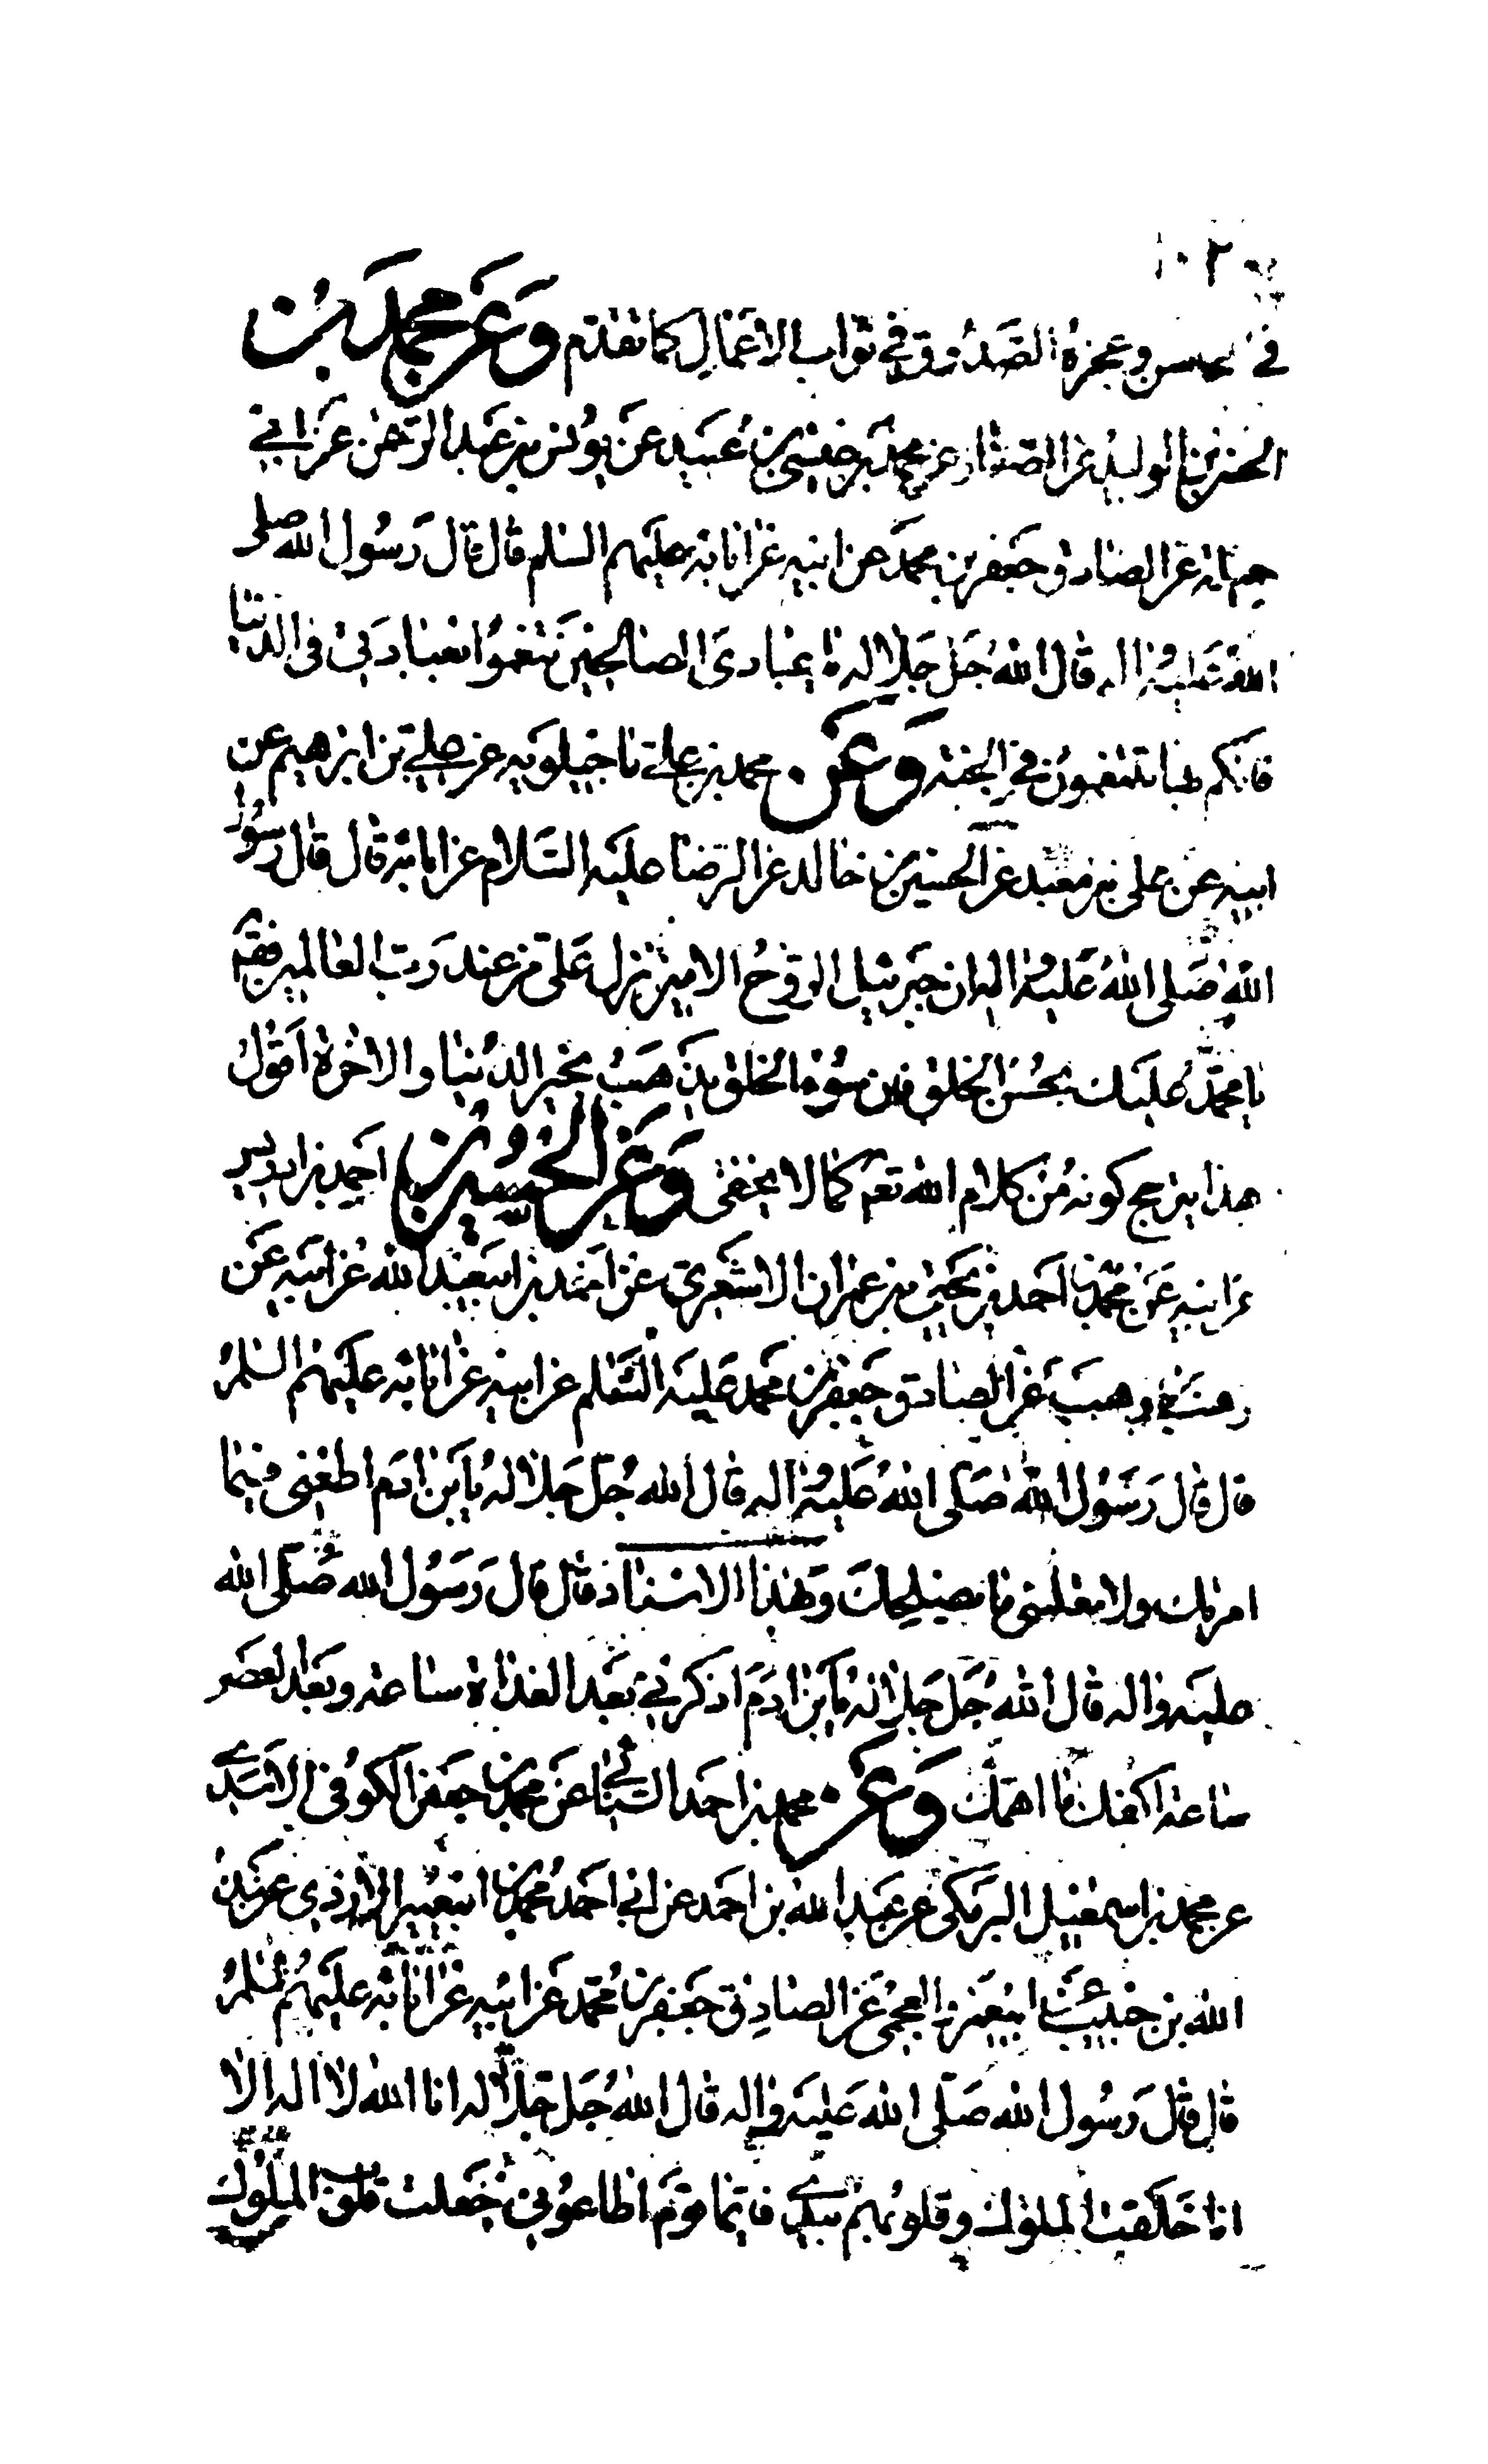 ١٠٢
في وغيره الصدوق في ثواب الاعمال كما تقدم وعن محمد بن
الحسن بن الوليد عن الصفار عن محمد بن عيسى بن عبيد عن يونس بن عبد الرحمن عن ابي
عن الصادق جعفر بن محمد عن ابيه عن ابائه عليهم السلم قال قال رسول الله صلى
الله عليه واله قال الله جل جلاله يا عبادي الصالحين تنعموا بعبادتي في الدنيا
فانكم بها تتنعمون في الجنة وعن محمد بن علي ماجيلويه عن علي بن ابرهيم عن
ابيه عن علي بن معبد عن الحسين بن خالد عن الرضا عليه السلام عن ابائه قال قال رسول
الله صلى الله عليه واله ان جبرئيل الروح الامين نزل علي من عند رب العالمين فقال
يا محمد عليك بحسن الخلق فان سوء الخلق يذهب بخير الدنيا والاخرة اقول
هذا يرجح كونه من كلام الله تعم كما لا يخفى وعن الحسين بن احمد بن ادريس
عن ابيه عن محمد بن احمد بن يحيى بن عمران الاشعري عن احمد بن ابي عبد الله عن ابيه عن
وهب بن وهب عن الصادق جعفر بن محمد عليه السلم عن ابيه عن ابائه عليهم السلم
قال قال رسول الله صلى الله عليه واله قال الله جل جلاله يا بن ادم اطعني فيما
امرتك ولا تعلمني ما يصلحك وبهذا الاسناد قال قال رسول الله صلى الله
عليه واله قال الله جل جلاله يا بن ادم اذكرني بعد الغداة ساعة وبعد العصر
ساعة اكفك ما اهمك وعن محمد بن احمد السناني عن محمد بن جعفر الكوفي الاسدي
عن محمد بن اسمعيل البرمكي عن عبد الله بن احمد عن ابي احمد محمد بن الازدي عن عبد
الله بن عن ابن العجمي عن الصادق جعفر بن محمد عن ابيه عن ابائه عليهم السلم
قال قال رسول الله صلى الله عليه واله قال الله جل جلاله انا الله لا اله الا
انا خلقت الملوك وقلوبهم بيدي فايما قوم اطاعوني جعلت قلوب الملوك